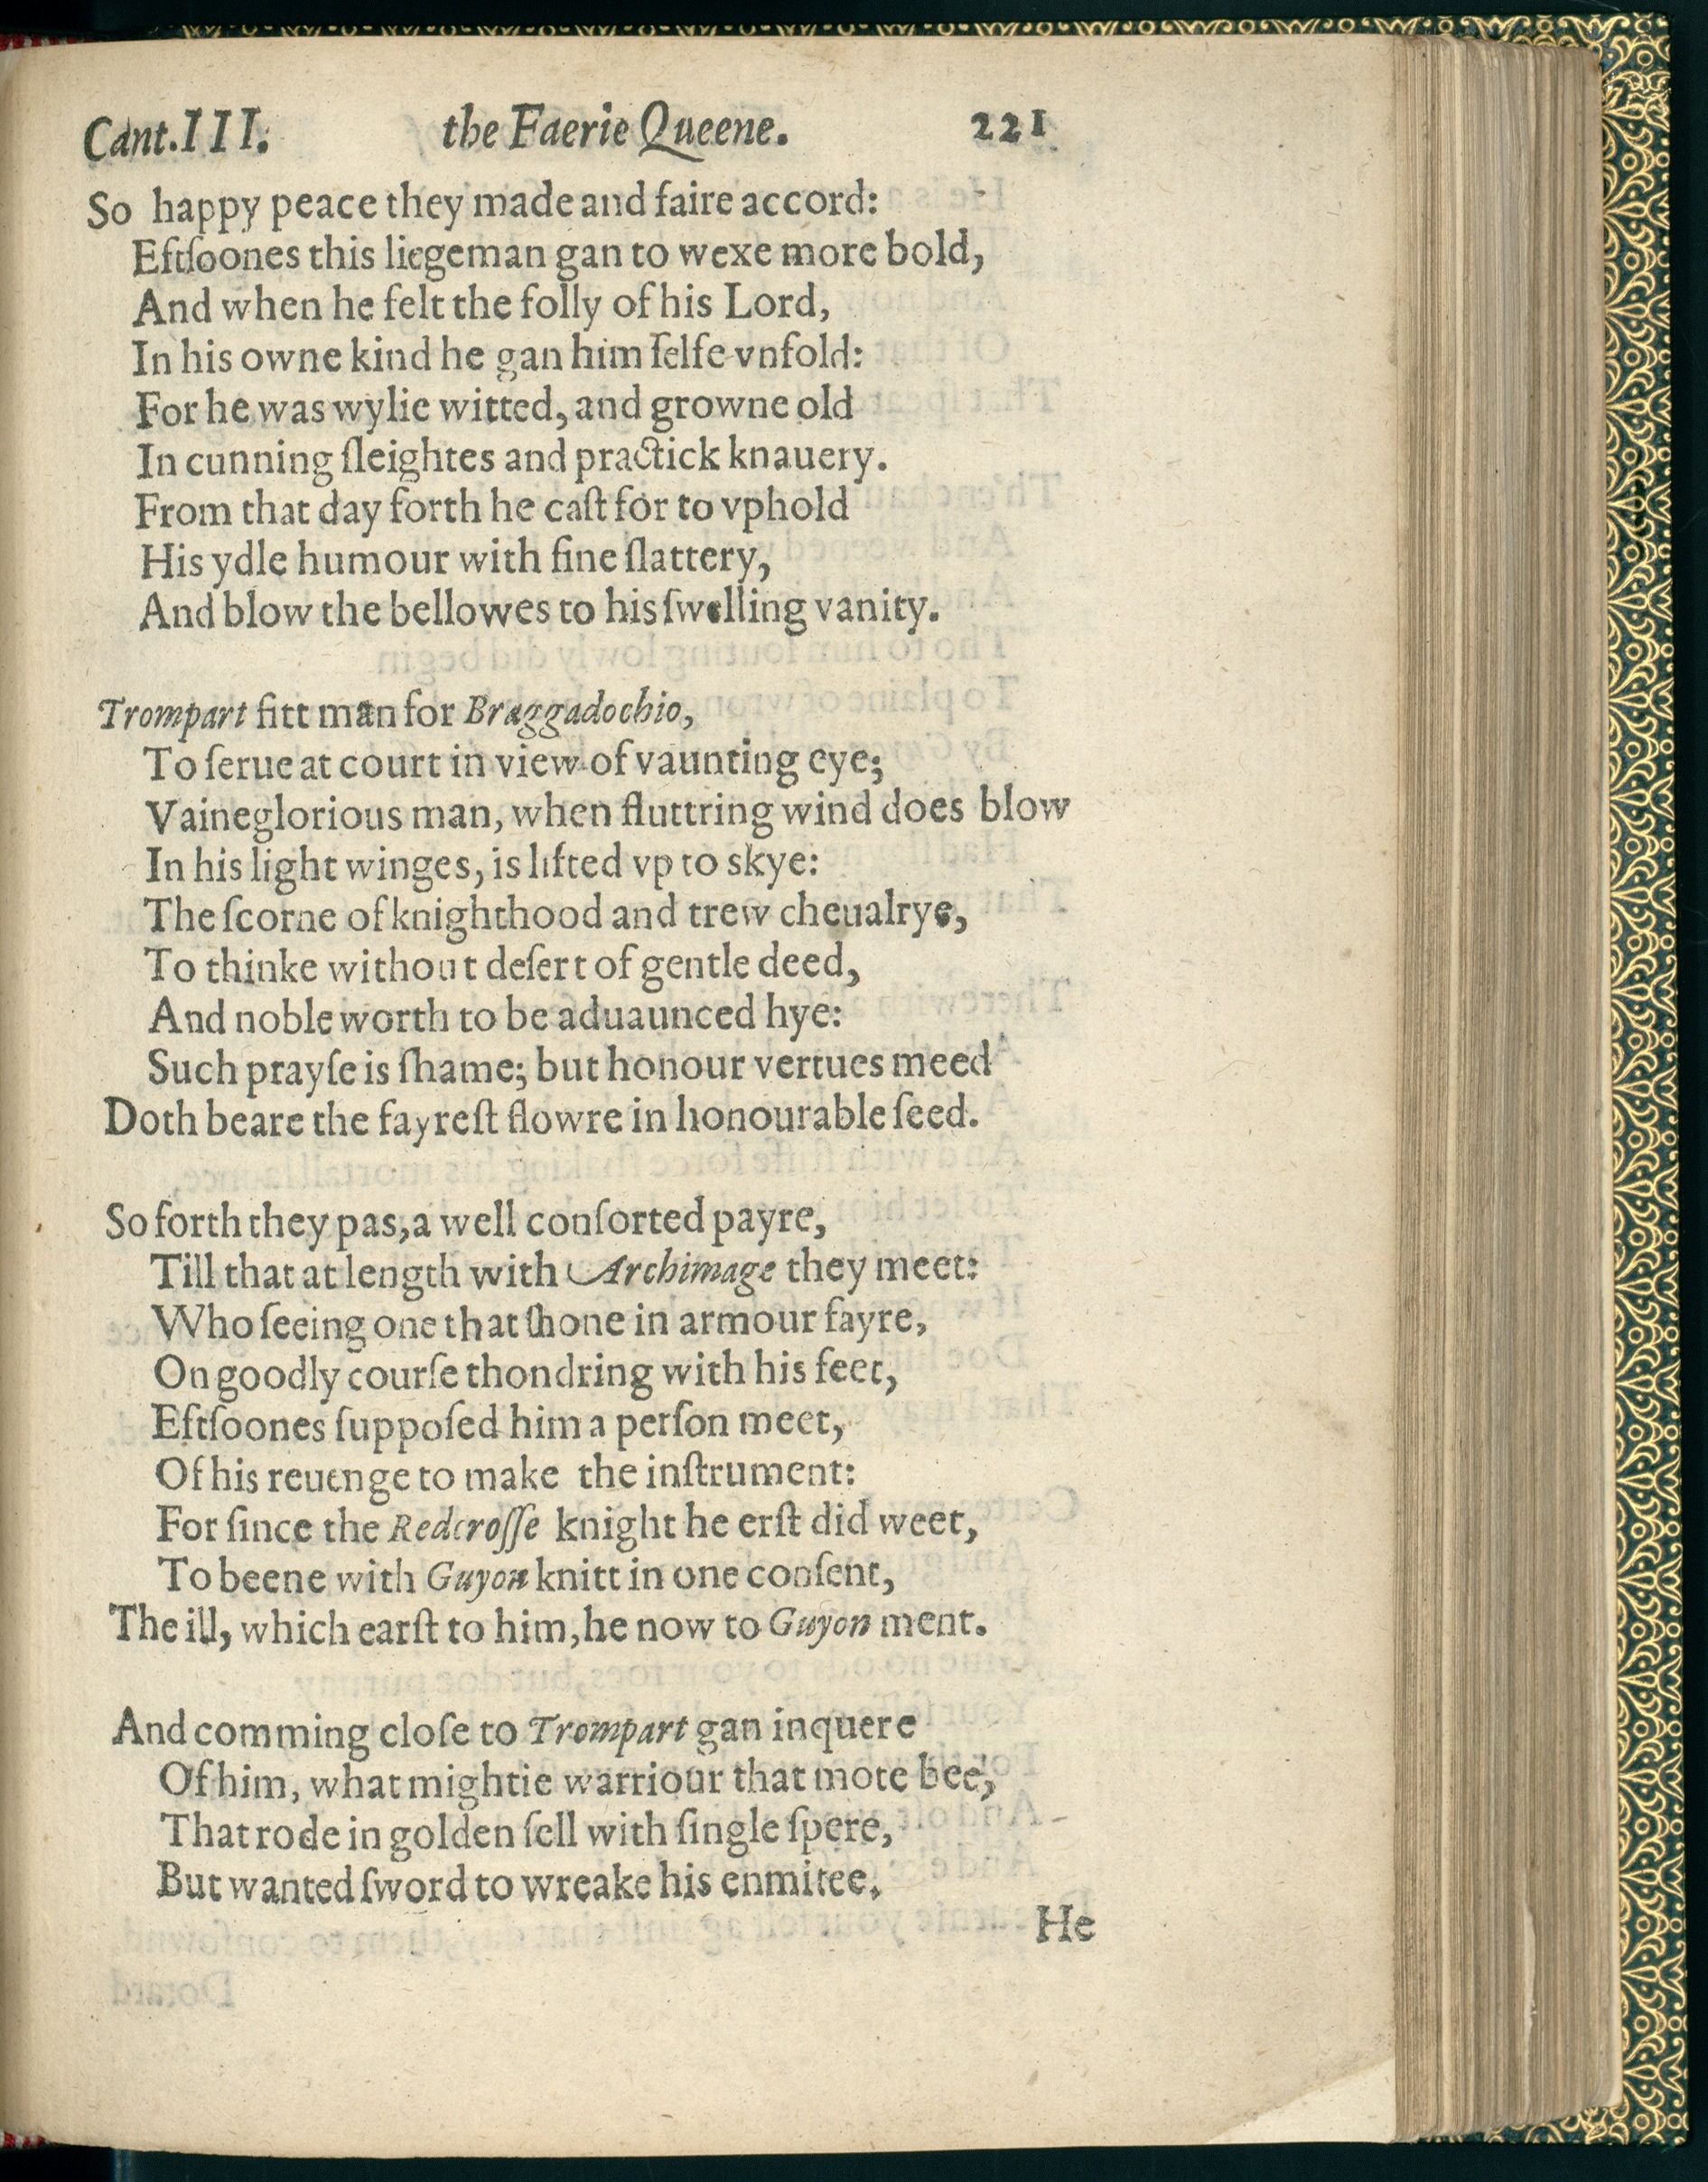 Cant.III. the Faerie Queene. 221
So happy peace they made and faire accord:
Eftſoones this liegeman gan to wexe more bold,
And when he felt the folly of his Lord,
In his owne kind he gan him ſelfe vnfold:
For he was wylie witted, and growne old
In cunning ſleightes and practick knauery.
From that day forth he caſt for to vphold
His ydle humour with fine flattery,
And blow the bellowes to his ſwelling vanity.
Trompart fitt man for Braggadochio,
To ſerue at court in view of vaunting eye;
Vaineglorious man, when fluttring wind does blow
In his light winges, is lifted vp to skye:
The ſcorne of knighthood and trew cheualrye,
To thinke without deſert of gentle deed,
And noble worth to be aduaunced hye:
Such prayſe is ſhame; but honour vertues meed
Doth beare the fayreſt flowre in honourable ſeed.
So forth they pas, a well conſorted payre,
Till that at length with Archimage they meet:
Who ſeeing one that ſhone in armour fayre,
On goodly courſe thondring with his feet,
Eftſoones ſuppoſed him a perſon meet,
Of his reuenge to make the inſtrument:
For ſince the Redcroſſe knight he erſt did weet,
To beene with Guyon knitt in one conſent,
The ill, which earſt to him, he now to Guyon ment.
And comming cloſe to Trompart gan inquere
Of him, what mightie warriour that mote bee,
That rode in golden ſell with ſingle ſpere,
But wanted ſword to wreake his enmitee.
He